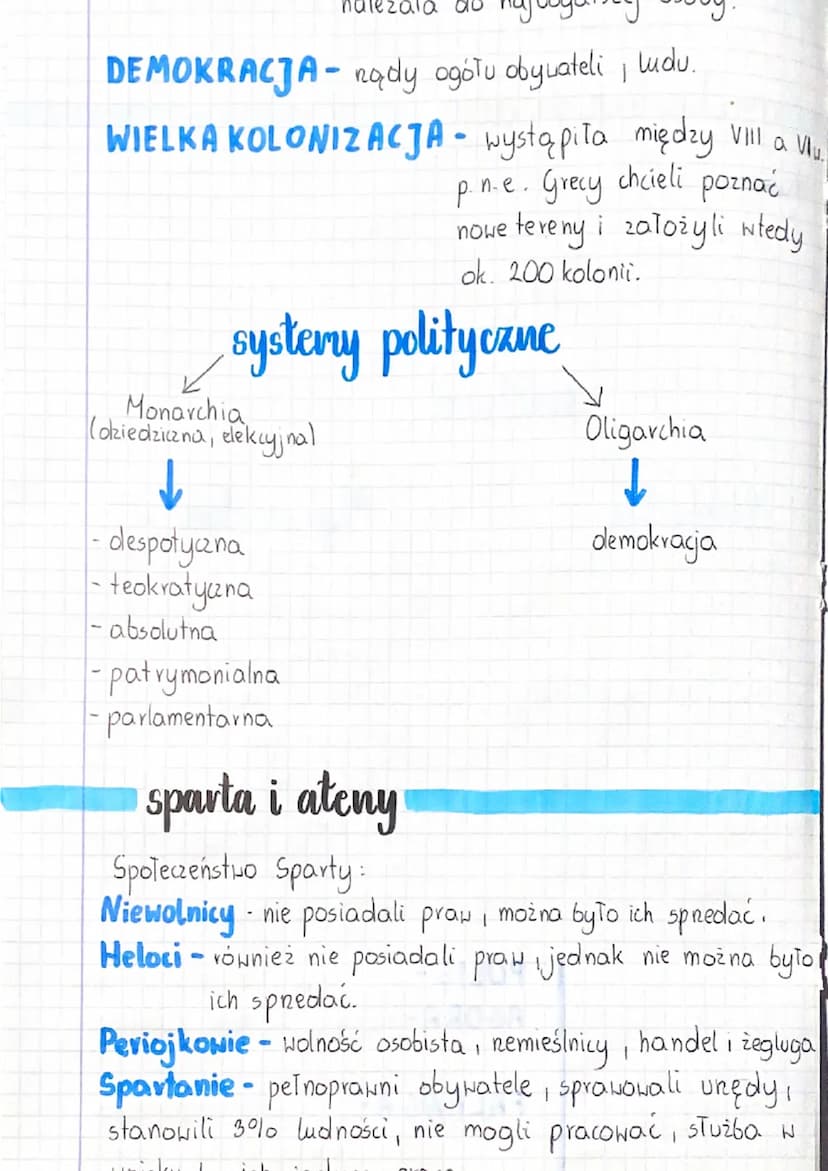 należała do najbogatszej osoby.
DEMOKRACJA - rządy ogółu obywateli, ludu.
WIELKA KOLONIZACJA - wystąpiła między VIII a VI w.
p. n. e. Grecy chcieli poznać
nowe tereny i założyli wtedy
ok. 200 kolonii.
systemy polityczne
Monarchia
(dziedziczna, elekcyjna)
Oligarchia
- despotyczna
- teokratyczna
- absolutna
- patrymonialna
- parlamentarna
demokracja
sparta i ateny
Społeczeństwo Sparty:
Niewolnicy - nie posiadali praw, można było ich sprzedać.
Heloci - również nie posiadali praw, jednak nie można było
ich sprzedać.
Periojkowie - wolność osobista, rzemieślnicy, handel i żegluga
Spartanie - pełnoprawni obywatele, sprawowali urzędy,
stanowili 3% ludności, nie mogli pracować, służba w